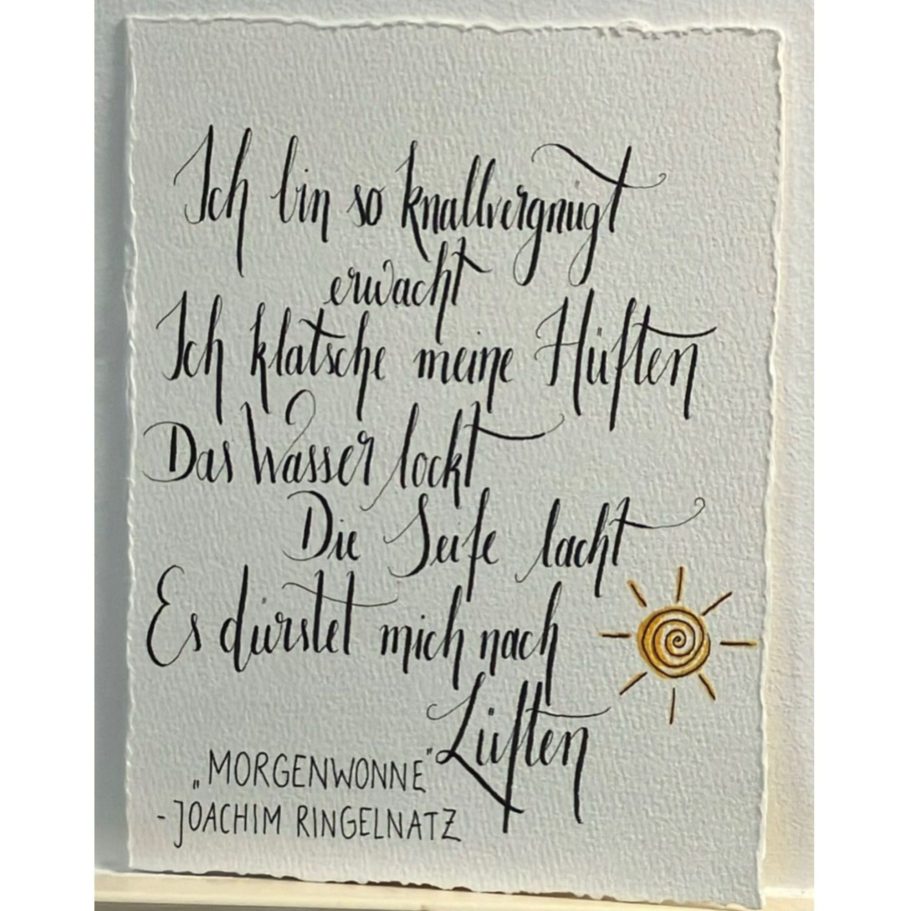 Ich bin so knallvergnügt
erwacht
Ich klatsche meine Hüften
Das Wasser lockt
Die Seife lacht
Es dürstet mich nach
Lüften
„MORGENWONNE"
-JOACHIM RINGELNATZ